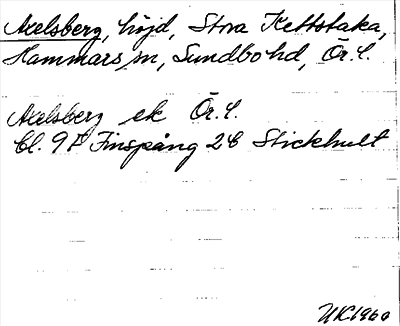 Axelsberg, höjd, Stora Kettstaka,
Hammars sn, Sundbo hd, Ör. l.
Axelsberg ek Ör. l.
Bl. 9F Finspång 2C Stickhult
UK 1960